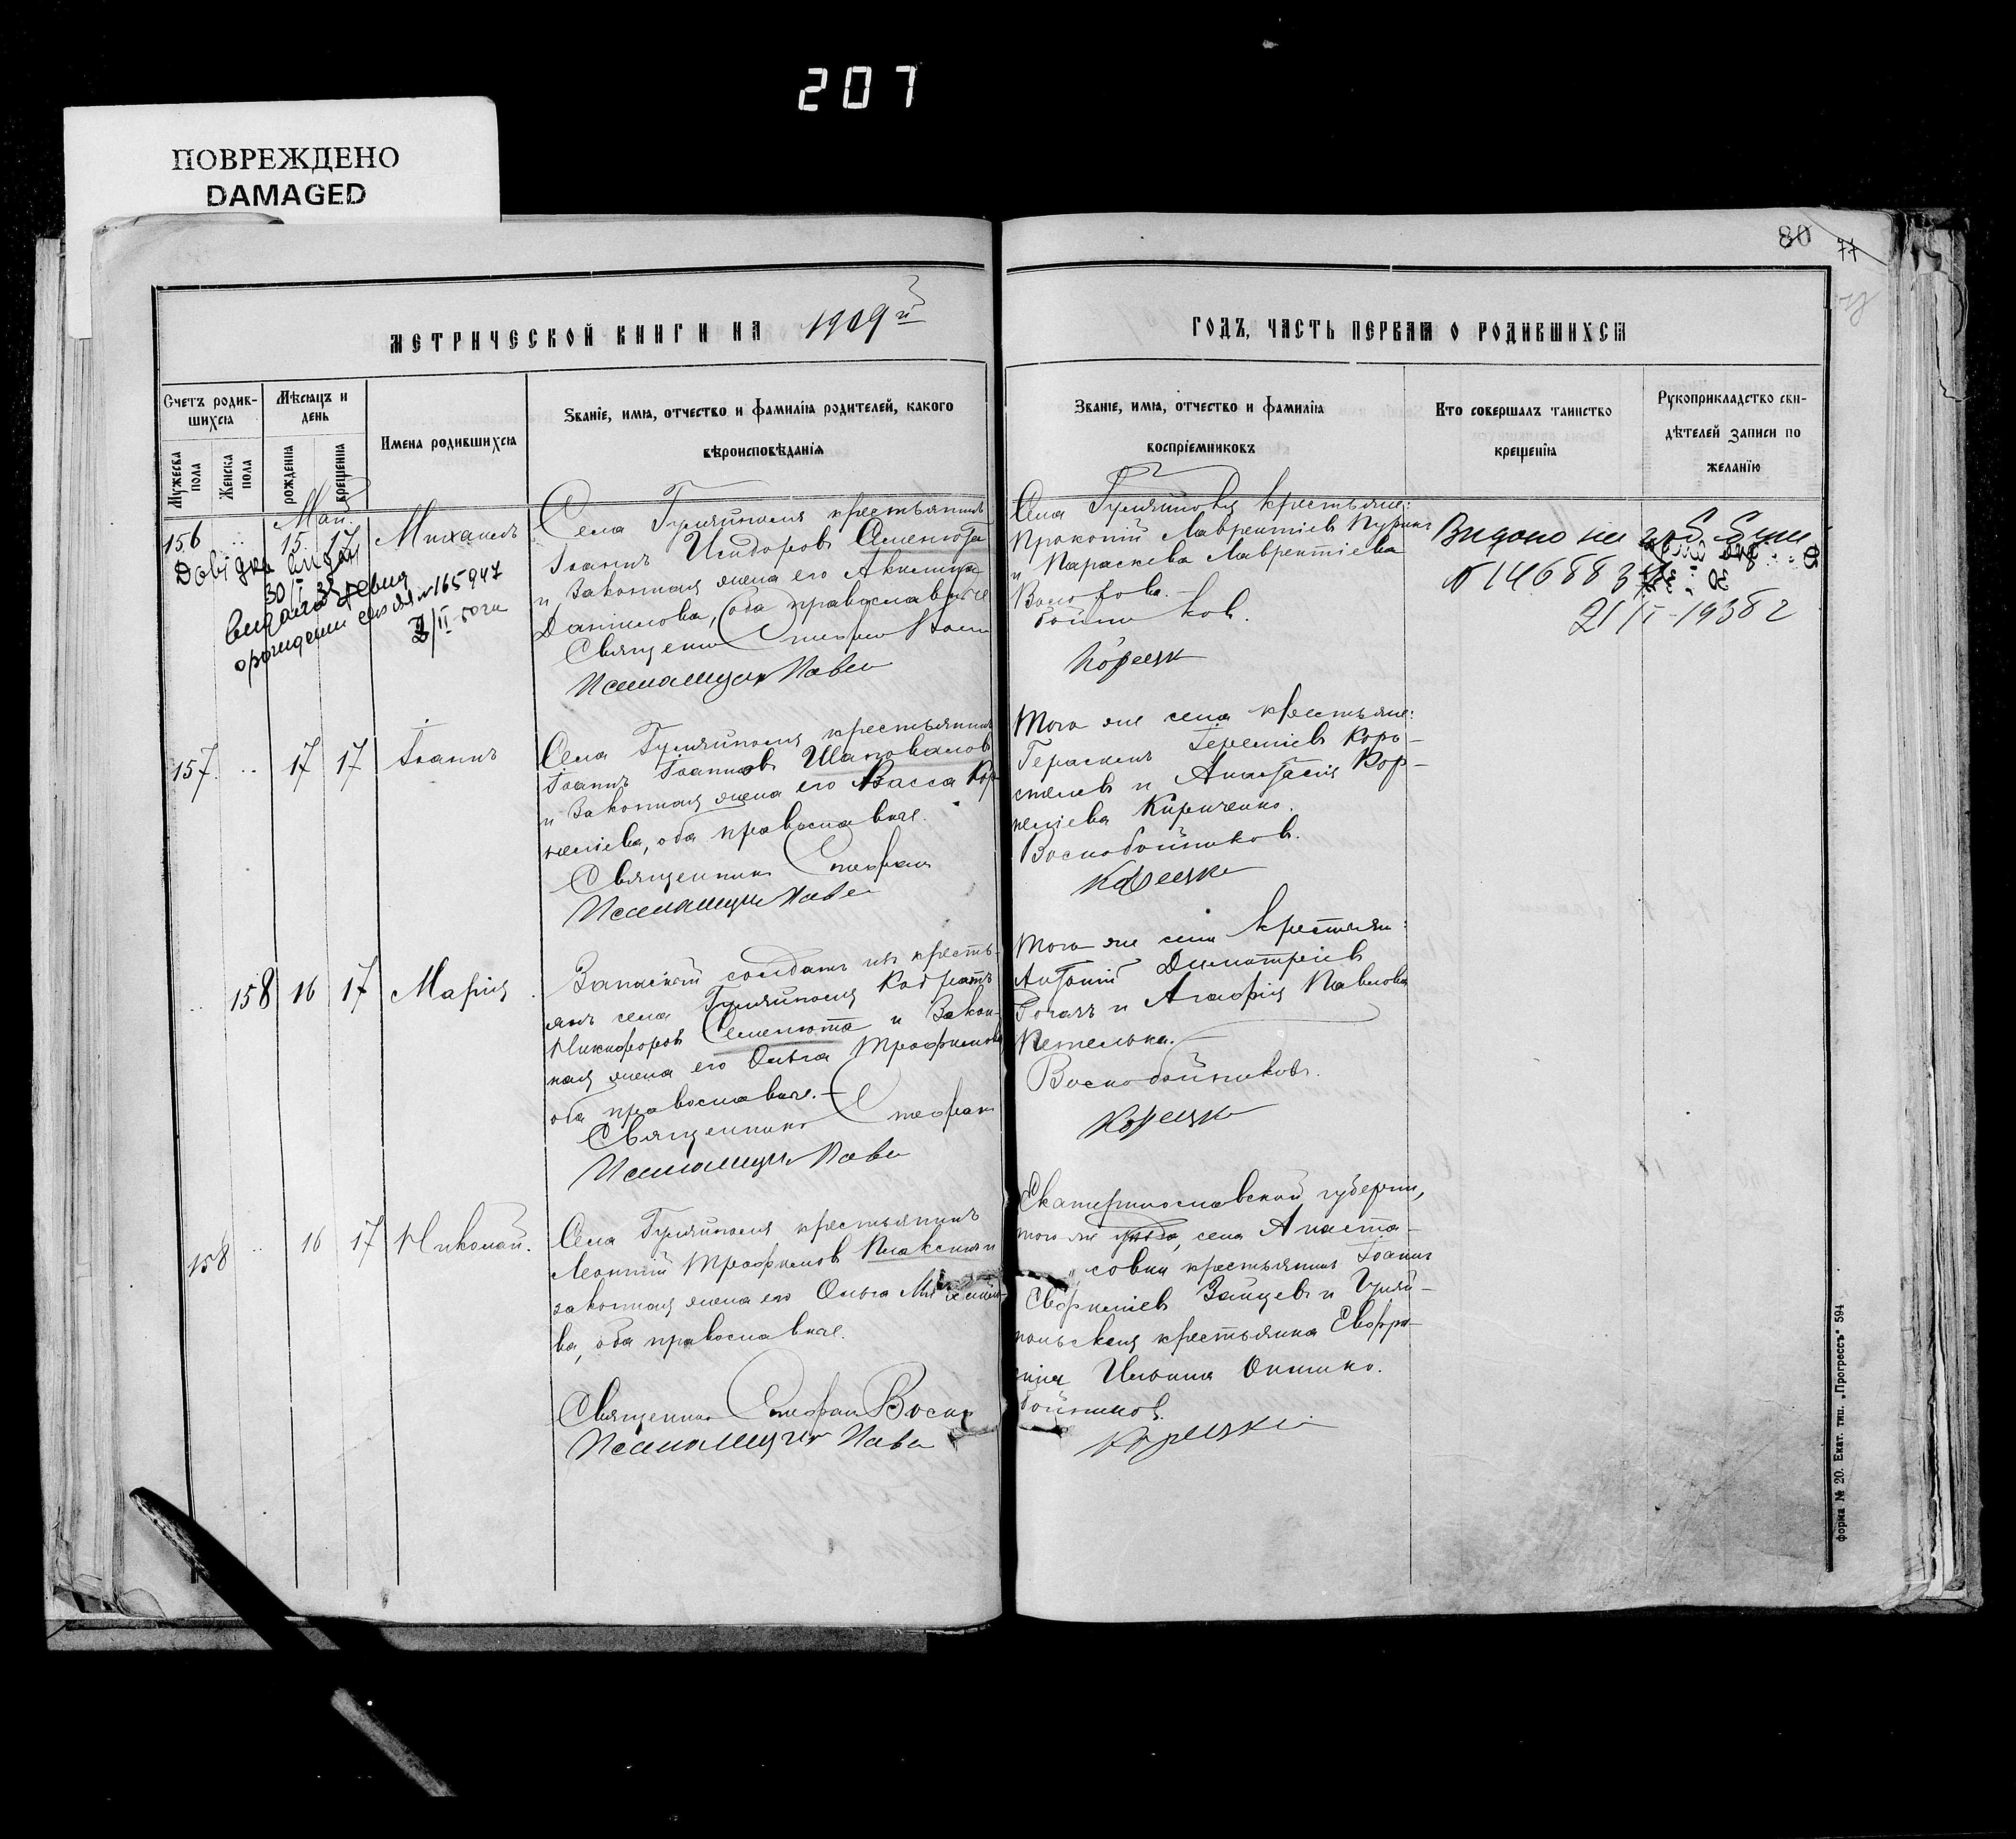 207
ПОВРЕЖДЕНО
DAMAGED
80 77
МЕТРИЧЕСКОЙ КНИГИ НА 1909 й
ГОДЪ, ЧАСТЬ ПЕРВАЯ О РОДИВШИХСЯ
Счетъ родив-
шихся
Мужеска пола
Женска пола
Мѣсяцъ и
день
рожденія
крещенія
Имена родившихся
Званіе, имя, отчество и фамилія родителей, какого
вѣроисповѣданія
Званіе, имя, отчество и фамилія
воспріемниковъ
Кто совершалъ таинство
крещенія
Рукоприкладство сви-
дѣтелей записи по
желанію
Май
156 15 17 Михаилъ
Села Гуляйполя крестьянинъ
Іоаннъ Исидоровъ Семенюта
и законная жена его Акилина
Данилова, оба православные
Священникъ Стефанъ Воско
Псаломщикъ Павел
Села Гуляйполя крестьяне:
Прокопій Лаврентіевъ
и Параскева Лаврентіева
бойниковъ.
Корецкій
Видано на
№ 146883
21/I-1938 г
Довідка видан
30/I 38
№ 165947
157 17 17 Іоаннъ
Села Гуляйполя крестьянинъ
Іоаннъ Іоанновъ Шаповаловъ
и законная жена его Васса Кор-
неліева, оба православные.
Священникъ Стефанъ
Псаломщикъ Павел
Того же села крестьяне:
Герасимъ Іереміевъ Коро-
стелевъ и Анастасія Кор-
неліева Кириченко.
Воскобойниковъ.
Корецкій
158 16 17 Марія
Запасный солдатъ изъ кресть-
янъ села Гуляйполя Кодратъ
Никифоровъ Семенюта и закон-
ная жена его Ольга Трофимова
оба православные.
Священникъ Стефанъ
Псаломщикъ Павел
Того же села крестьяне:
Антоній Димитріевъ
Рогазъ и Агафія Павлова
Петелька.
Воскобойниковъ.
Корецкій
158 16 17 Николай.
Села Гуляйполя крестьянинъ
Леонтій Трофимовъ Плаксинъ и
законная жена его Ольга
ва, оба православные.
Священникъ Стефанъ Воско
Псаломщикъ Павел
Екатеринославской губерніи,
того же уѣзда, села Анаста-
совки крестьянинъ Іоаннъ
Евфиміевъ Зайцевъ и Гуляй-
польская крестьянка Евфро-
синія Ильина Онишко.
бойниковъ.
Корецкій
форма № 20. Екат. тип. „Прогрессъ" 594